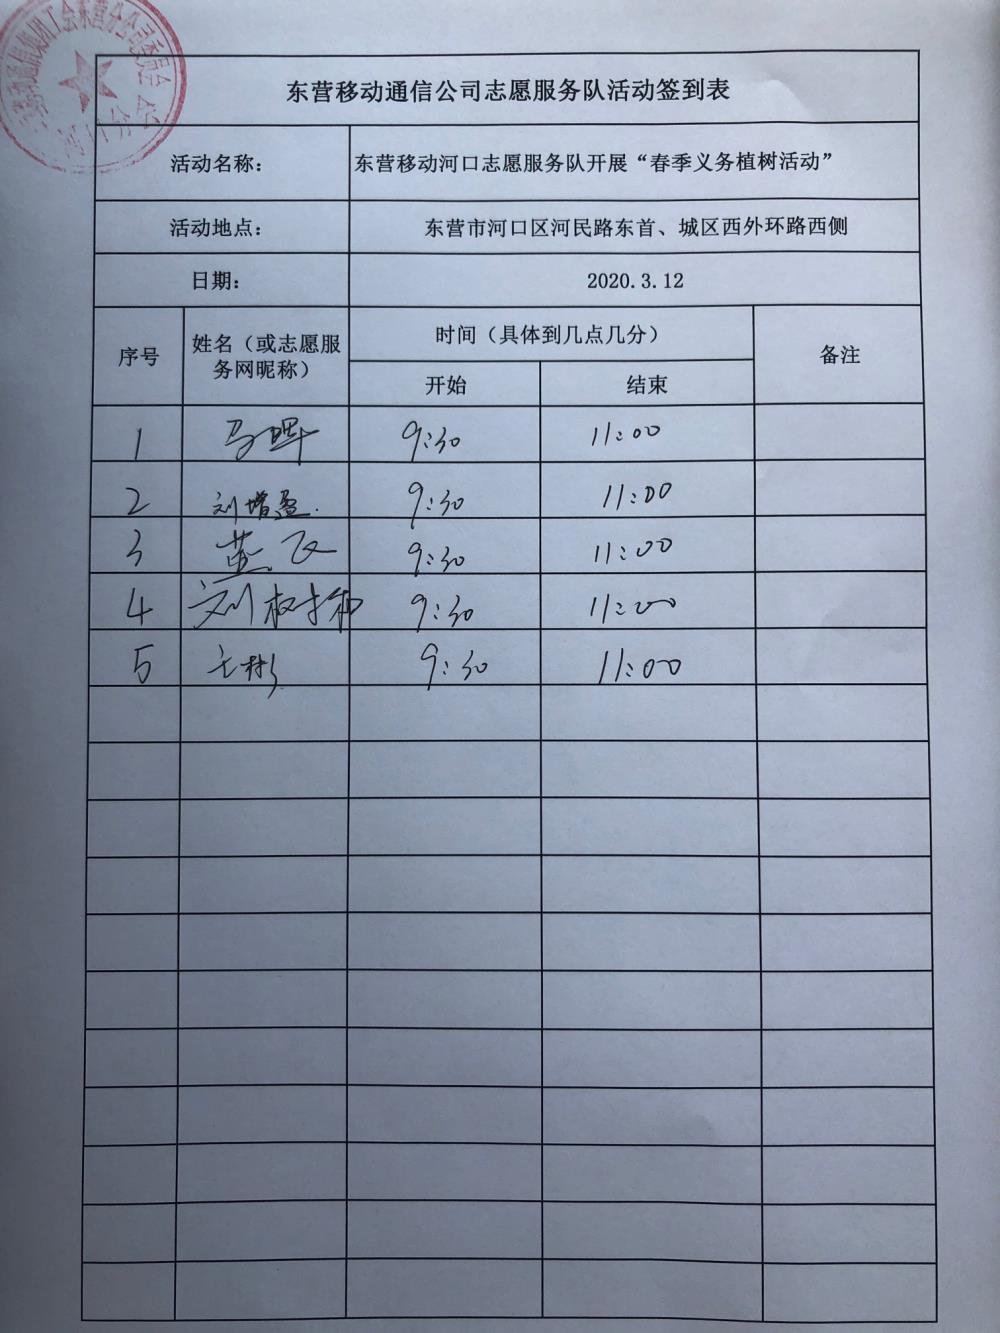 东营移动通信公司志愿服务队活动签到表
活动名称： 东营移动河口志愿服务队开展“春季义务植树活动”
活动地点： 东营市河口区河民路东首、城区西外环路西侧
日期： 2020.3.12
序号 姓名（或志愿服务网昵称） 时间（具体到几点几分） 备注
开始 结束
1 马晖 9:30 11:00
2 刘增盈. 9:30 11:00
3 董飞 9:30 11:00
4 刘树 9:30 11:00
5 彬 9:30 11:00